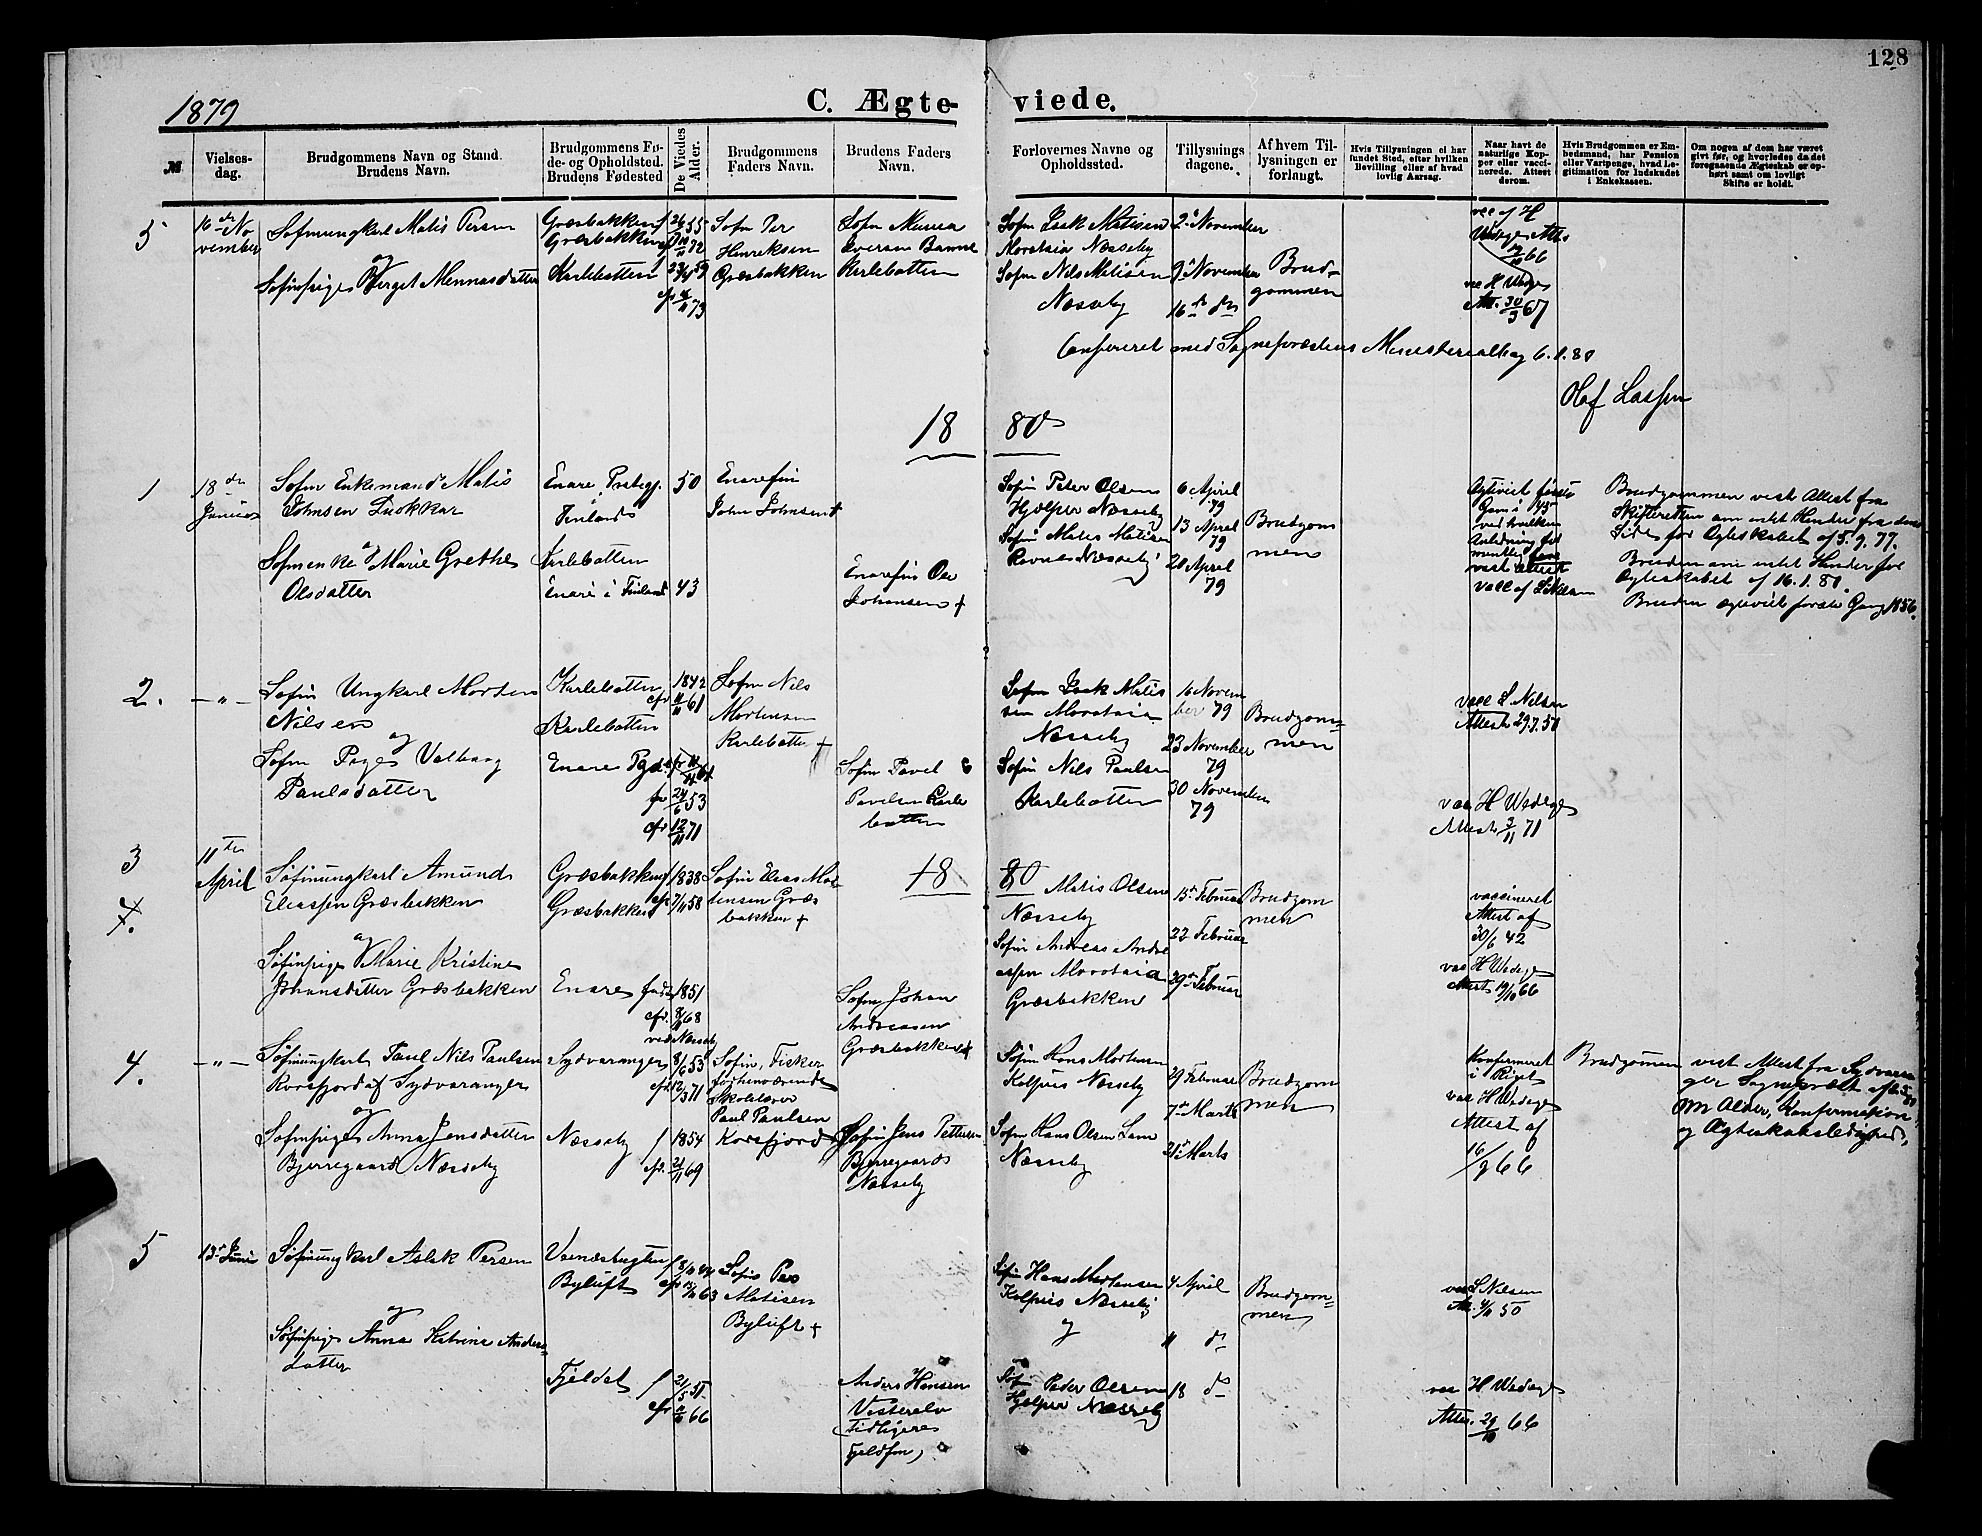 128
1879
C. Ægte- viede.
№
Vielses-
dag.
Brudgommens Navn og Stand.
Brudens Navn.
Brudgommens Fø-
de- og Opholdsted.
Brudens Fødested
De Viedes
Alder.
Brudgommens
Faders Navn.
Brudens Faders
Navn.
Forlovernes Navne og
Opholdssted.
Tillysnings
dagene.
Af hvem Til-
lysningen er
forlangt.
Hvis Tillysningen ei har
fundet Sted, efter hvilken
Bevilling eller af hvad
lovlig Aarsag.
Naar havt de
naturlige Kop-
per eller vacci-
nerede. Attest
derom.
Hvis Brudgommen er Em-
bedsmand, har Pension
eller Vartpenge, hvad Le-
gitimation for Indskudet
i Enkekassen.
Om nogen af dem har været
givt før, og hvorledes da det
foregaaende Ægteskab er op-
hørt samt om lovligt
Skifte er holdt.
5
16de No
vember
Søfinungkarl Matis Persen
og
Søfinpige Berget Mennasdatter
Græsbakken
Græsbakken
Karlebotten
Søfin Per
Henriksen
Græsbakken
Søfin Menna
Iversen
Karlebotten
Søfin Isak Matisen
Næsseby
Søfin Nils Matisen
Næsseby
2d November
9d November
16d
Brud-
gommen
66
vac H Wedege
Att. 30/3 67
Confereret med Sognepræstens Ministerialbog 6.1.80
Olaf Lassen
18 80
1
18de
Januar
Søfin Enkemand Matis
Johnsen
og
Søfinenke Marie Grethe
Olsdatter
Enare Prstegj.
Finland
Karlebotten
Enare i Finland
50
43
Enarefin
John Johnsen +
Enarefin Ole
Johansen +
Søfin Peter Olsen
Hjelper Næsseby
Søfin Matis Matisen
Næsseby
6 April
79
13 April
79
20 April
79
Brudgom
men
Ægteviet første
Gang i
ved hvilken
Anledning
vist Attest
vacc af L Nilsen
Brudgommen vist Attest fra
Skifteretten om intet Hinder fra
Side for Ægteskabet af 5.9.77.
Bruden om intet Hinder for
Ægteskabet af 16.1.80.
Bruden Ægteviet første Gang 1856.
2.
—"—
Søfin Ungkarl Morten
Nilsen
og
Søfin Pige Valborg
Paulsdatter
Karlebotten
Karlebotten
Enare
1842
cfr 61
24/6 53
cfr 12/11 71
Søfin Nils
Mortensen
Karlebotten +
Søfin Pavel
Pavelsen Karle
botten
Søfin Isak Matis
sen
Næsseby
Søfin Nils Paulsen
Karlebotten
16 Novem
ber 79
23 November
79
30 November
79
Brudgom=
men
vacc L Nilsen
Attest 29.7.50
vac H Wedege
Attest 3/11 71
3
7.
11te
April
Søfinungkarl Amund
Eliassen Græsbakken
og
Søfinpige Marie Kristine
Johansdatter Græsbakken
Græsbakken
Græsbakken
Enare
f 1838
cfr 7/11 58
født 1851
cfr. 8/11 68
ved Næsseby
Søfin Elias Mor
tensen Græs
bakken +
Søfin Johan
Andreasen
Græsbakken +
18 80
Matis Olsen
Næsseby
Søfin Andreas Andre
assen
Græsbakken
15d Februar
22 Februar
29d Februar
Brudgom
men
vaccineret
Attest af
30/6 42
vac H Wedege
Attest 19/10 66
4.
—"—
Søfinungkarl Paul Nils Paulsen
Korsfjord af Sydvaranger
og
Søfinpige Anna Jensdatter
Bjerregaard Næsseby
Sydvaranger
Næsseby
8/6 53
cfr 12/3 71
f 1854
cfr. 21/11 69
Søfin, Fisker
forhenværende
Skolelærer
Paul Paulsen
Korsfjord
Søfin Jens Pettersen
Bjerregaard
Næsseby
Søfin Hans Mortensen
Kolpus Næsseby
Søfin Hans Olsen
Næsseby
29 Februar
7de Marts
21d Marts
Brudgom
men
Konfirmeret
i Riget
vac H Wedege
Attest af
16/9 66
Brudgommen vist Attest fra Sydvaran
ger Sognepræst af
om Alder, Konfirmation
og Ægteskabsledighed.
5
13d Juni
Søfinungkarl Aslak Persen
og
Søfinpige Anna Katrine Anders
datter
Byluft
Fjeldet
cfr 63
f 21/5 51
cfr 66
Søfin Per
Matisen
Byluft +
Anders Hansen
Vesterelv
(tidligere
Fjeldfin)
Søfin Hans Mortensen
Kolpus Næsseby
og
Søf Peder Olsen
Hjelper Næsseby
4 April
11 do
18 do
Brudgom=
men
vac L Nilsen
50
vac H Wedege
Attes. 29/10 66